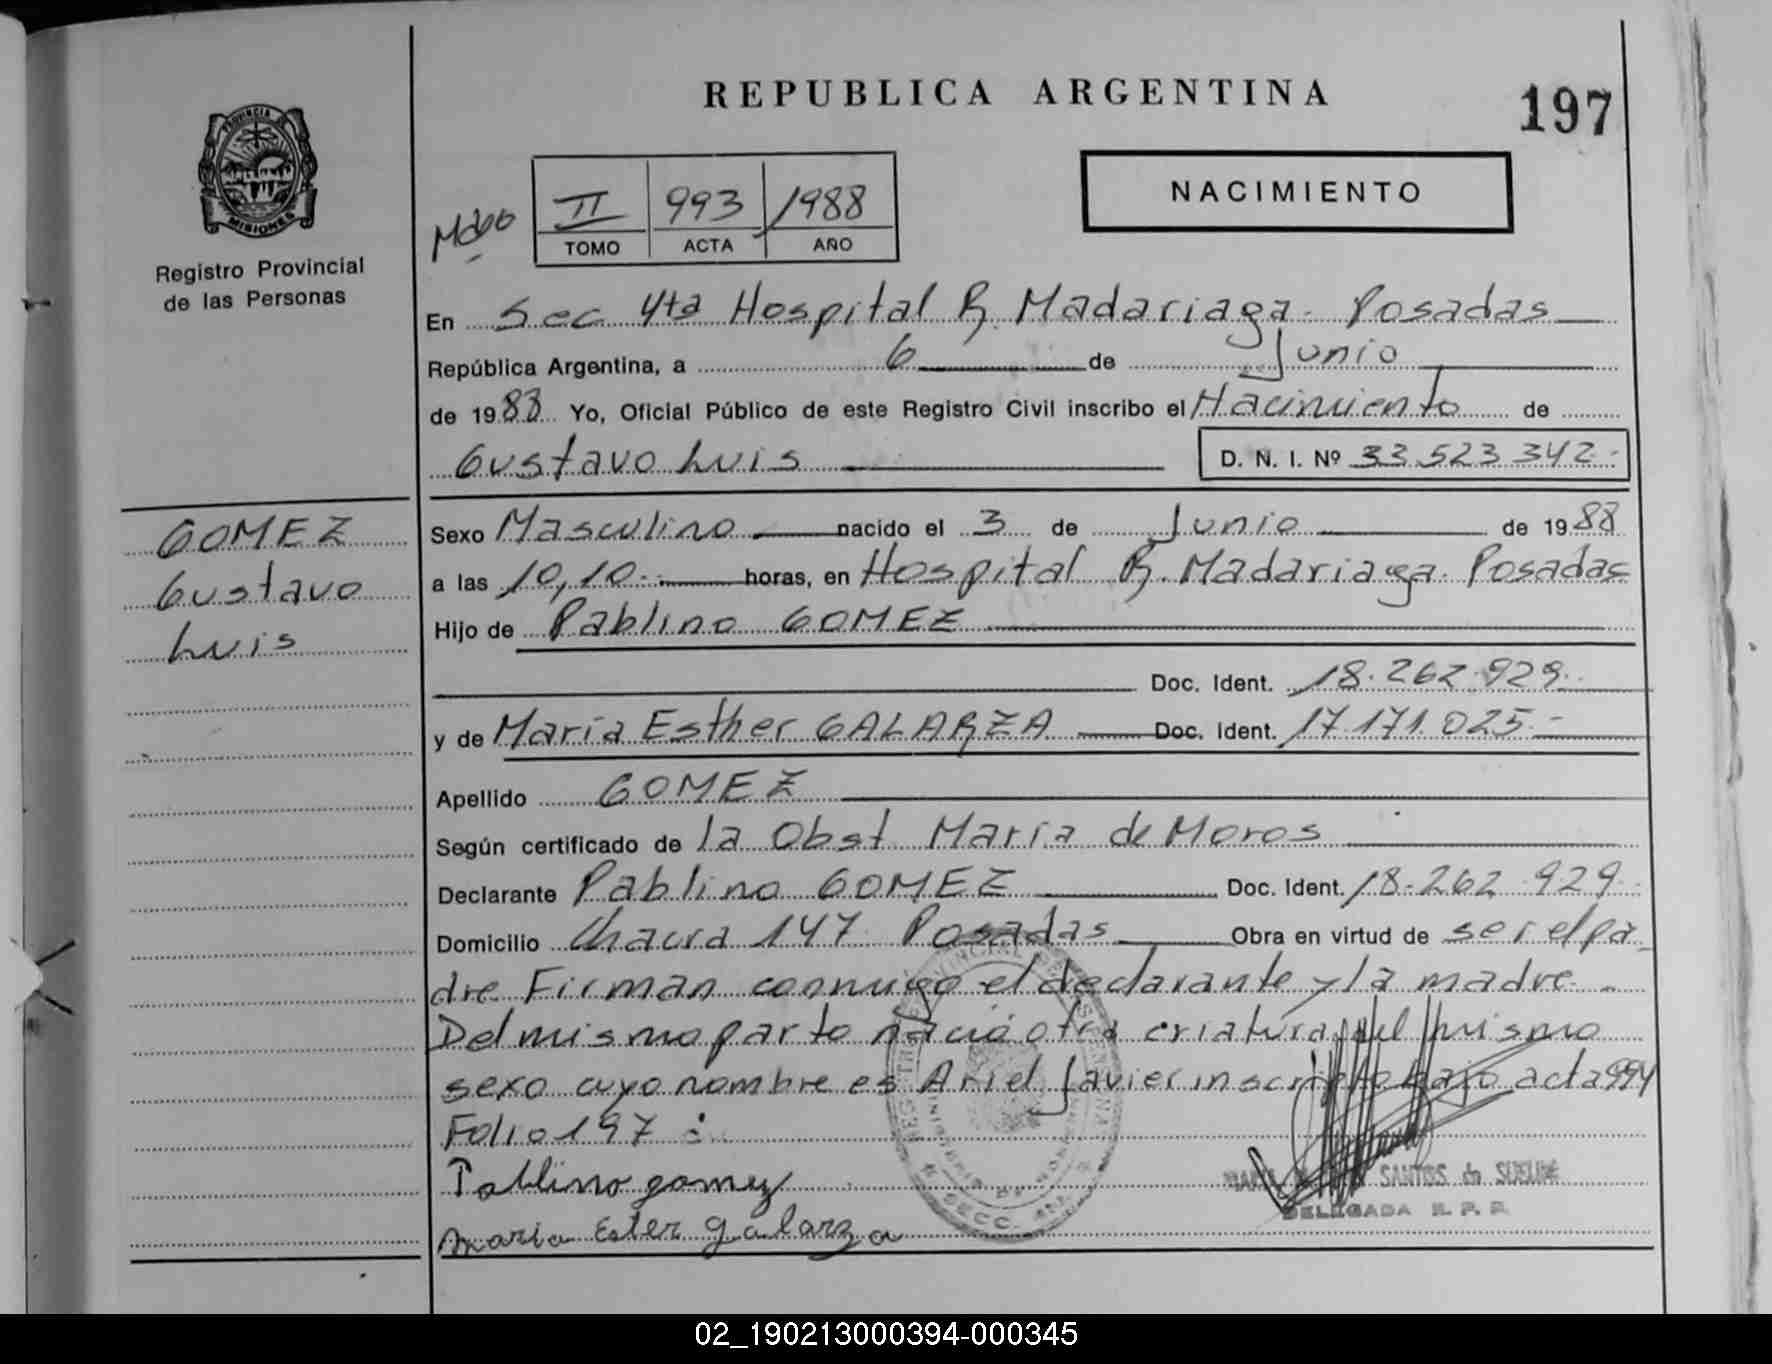 REPUBLICA ARGENTINA
197
PROVINCIA DE
MISIONES
Registro Provincial
de las Personas
II 993 1988
TOMO ACTA AÑO
NACIMIENTO
En Sec 4ta Hospital R. Madariaga - Posadas
República Argentina, a 6 de Junio
de 1988 Yo, Oficial Público de este Registro Civil inscribo el Nacimiento de
Gustavo Luis D. N. I. Nº 33.523.342.-
GOMEZ
Gustavo
Luis
Sexo Masculino nacido el 3 de Junio de 1988
a las 10,10.- horas, en Hospital R. Madariaga. Posadas
Hijo de Pablino GOMEZ
Doc. Ident. 18.262.929.-
y de María Esther GALARZA Doc. Ident. 17.171.025.-
Apellido GOMEZ
Según certificado de la Obst María de Moros
Declarante Pablino GOMEZ Doc. Ident. 18.262.929.-
Domicilio Chacra 147 Posadas Obra en virtud de ser el pa-
dre Firman conmigo el declarante y la madre.-
Del mismo parto nació otra criatura del mismo
sexo cuyo nombre es Ariel Javier inscripto bajo acta 994
Folio 197
Pablino gomez
maria Ester galarza
SANTOS de
DELEGADA R. P. P.
02_190213000394-000345